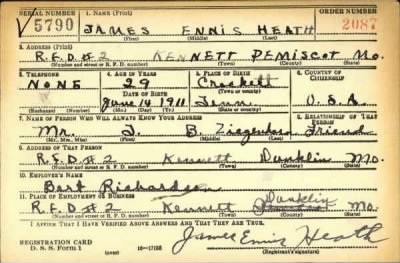 SERIAL NUMBER 1. NAME (Print) ORDER NUMBER
5790 JAMES ENNIS HEATH 2087
(First) (Middle) (Last)
2. ADDRESS (Print)
R.F.D. #2 KENNETT PEMISCOT Mo.
(Number and street or R. F. D. number) (Town) (County) (State)
3. TELEPHONE 4. AGE IN YEARS 5. PLACE OF BIRTH 6. COUNTRY OF CITIZENSHIP
NONE 29 Crockett
DATE OF BIRTH (Town or county)
June 14 1911 Tenn. U.S.A.
(Exchange) (Number) (Mo.) (Day) (Yr.) (State or country)
7. NAME OF PERSON WHO WILL ALWAYS KNOW YOUR ADDRESS 8. RELATIONSHIP OF THAT PERSON
Mr. J. B. Friend
(Mr., Mrs., Miss) (First) (Middle) (Last)
9. ADDRESS OF THAT PERSON
R.F.D. #2 Kennett Dunklin Mo.
(Number and street or R. F. D. number) (Town) (County) (State)
10. EMPLOYER'S NAME
Bert Richardson
11. PLACE OF EMPLOYMENT OR BUSINESS Dunklin
R.F.D. #2 Kennett Mo.
(Number and street or R. F. D. number) (Town) (County) (State)
I AFFIRM THAT I HAVE VERIFIED ABOVE ANSWERS AND THAT THEY ARE TRUE.
REGISTRATION CARD James Ennis Heath
D. S. S. Form 1 16-17105 (Registrant's signature)